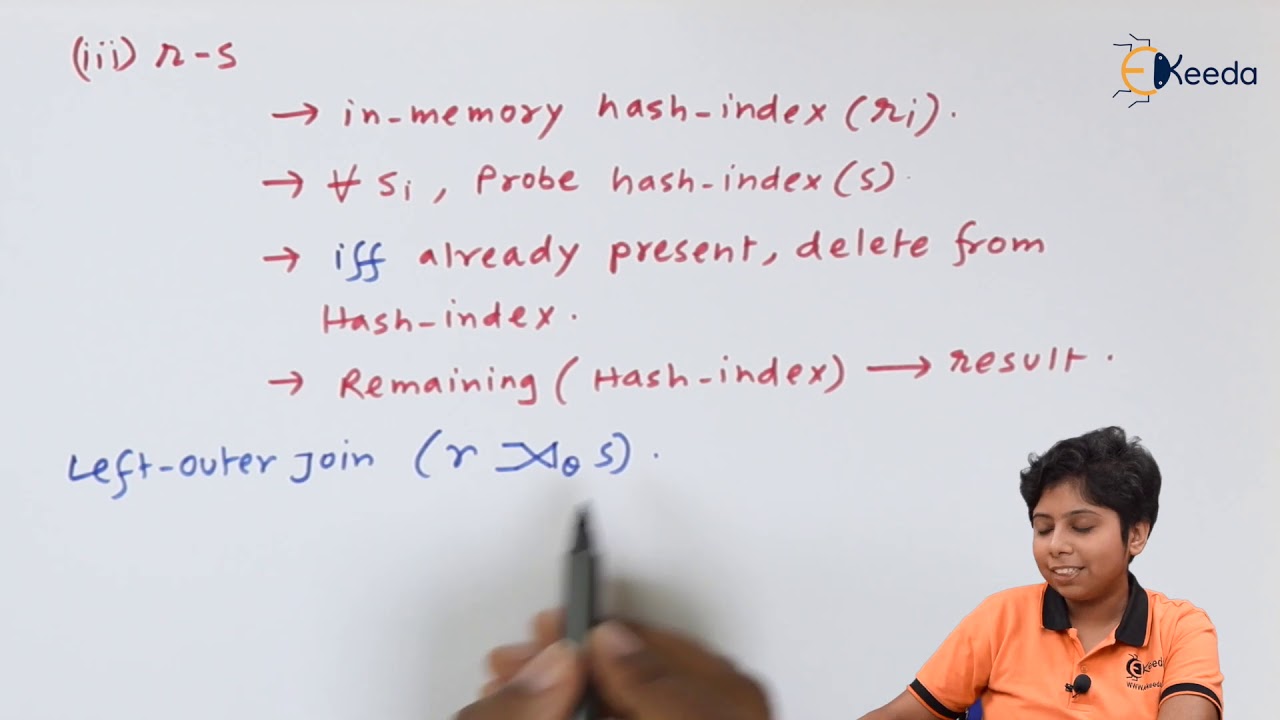 (iii) r - s
EKeeda
→ in-memory hash-index (ri).
→ ∀ si, Probe hash-index (s).
→ iff already present, delete from
Hash-index.
→ Remaining (Hash-index) → result.
Left-outer join (r ⟕θ s).
EKeeda